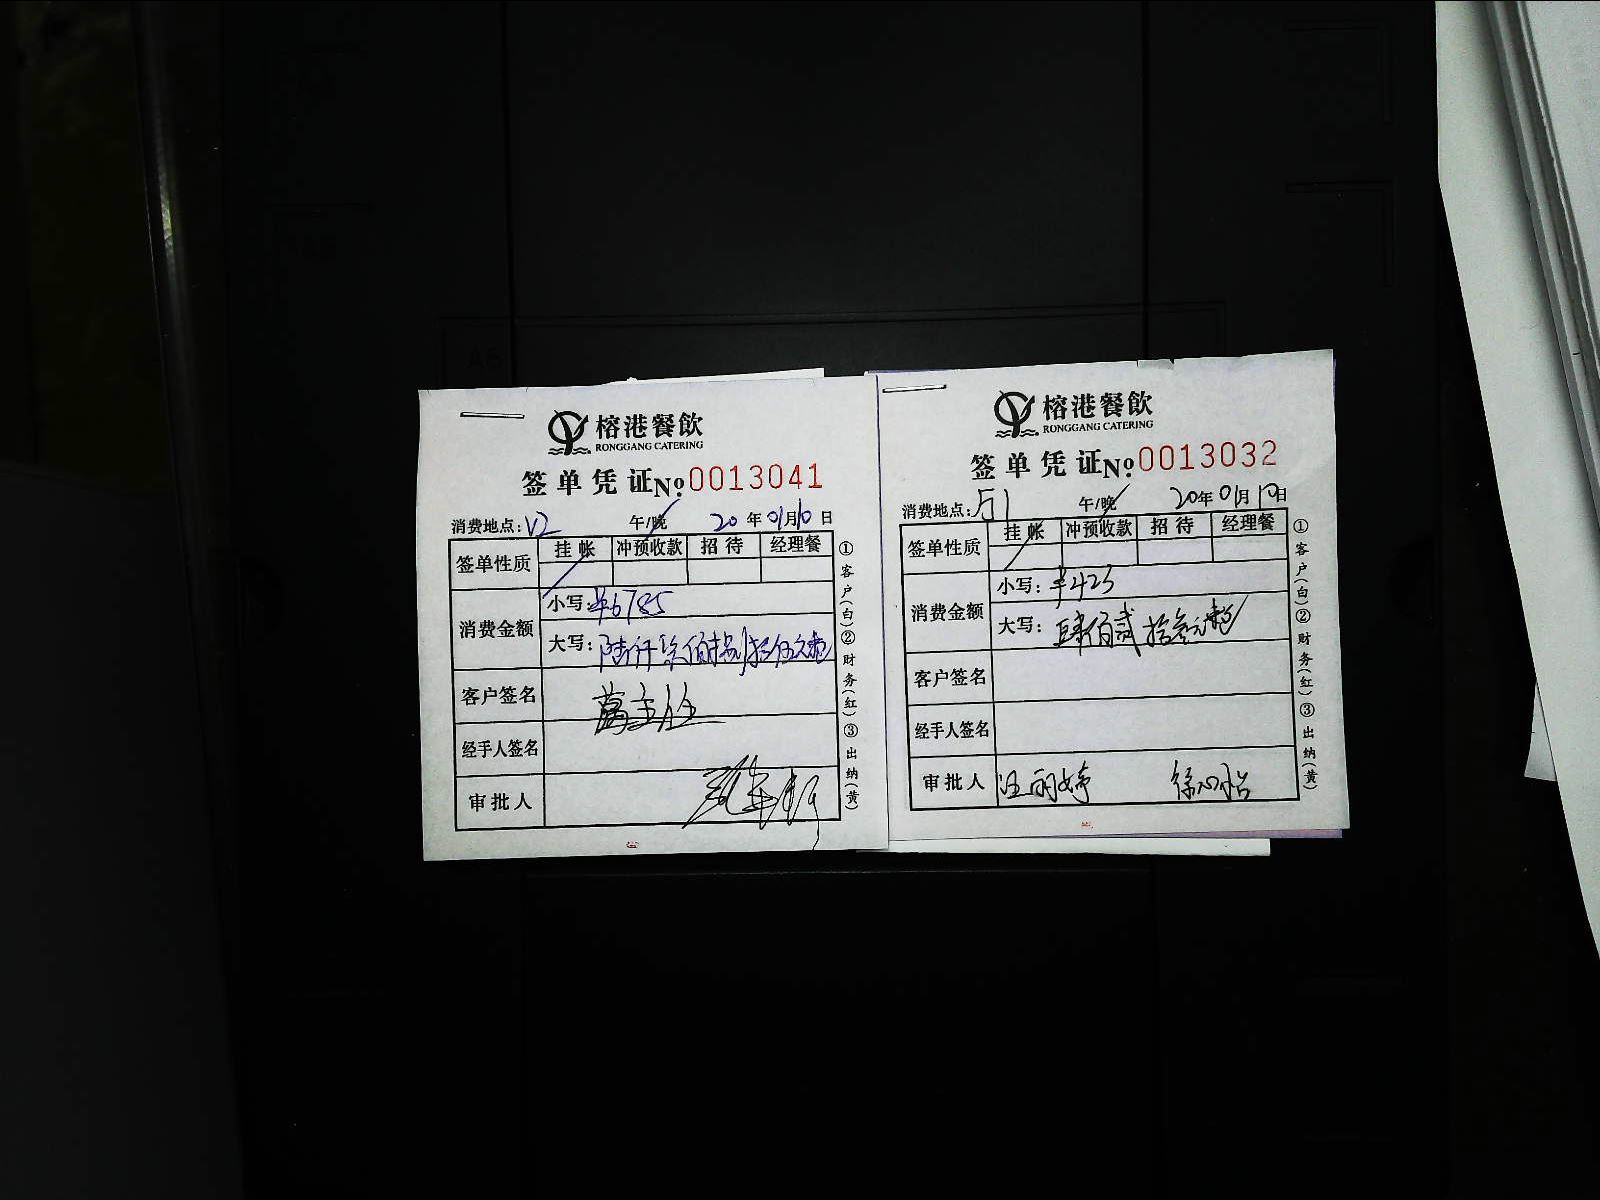 榕港餐飲
RONGGANG CATERING
签单凭证№0013041
消费地点：V2 午/晚 20年01月10日
签单性质 挂帐 冲预收款 招待 经理餐
消费金额 小写：¥6785
大写：陆仟柒佰捌拾伍元整
客户签名 葛主任
经手人签名
审批人
①客户(白)②财务(红)③出纳(黄)
榕港餐飲
RONGGANG CATERING
签单凭证№0013032
消费地点： 午/晚 20年01月10日
签单性质 挂帐 冲预收款 招待 经理餐
消费金额 小写：¥423
大写：肆佰贰拾叁元整
客户签名
经手人签名
审批人 汪丽婷 徐心怡
①客户(白)②财务(红)③出纳(黄)
A5